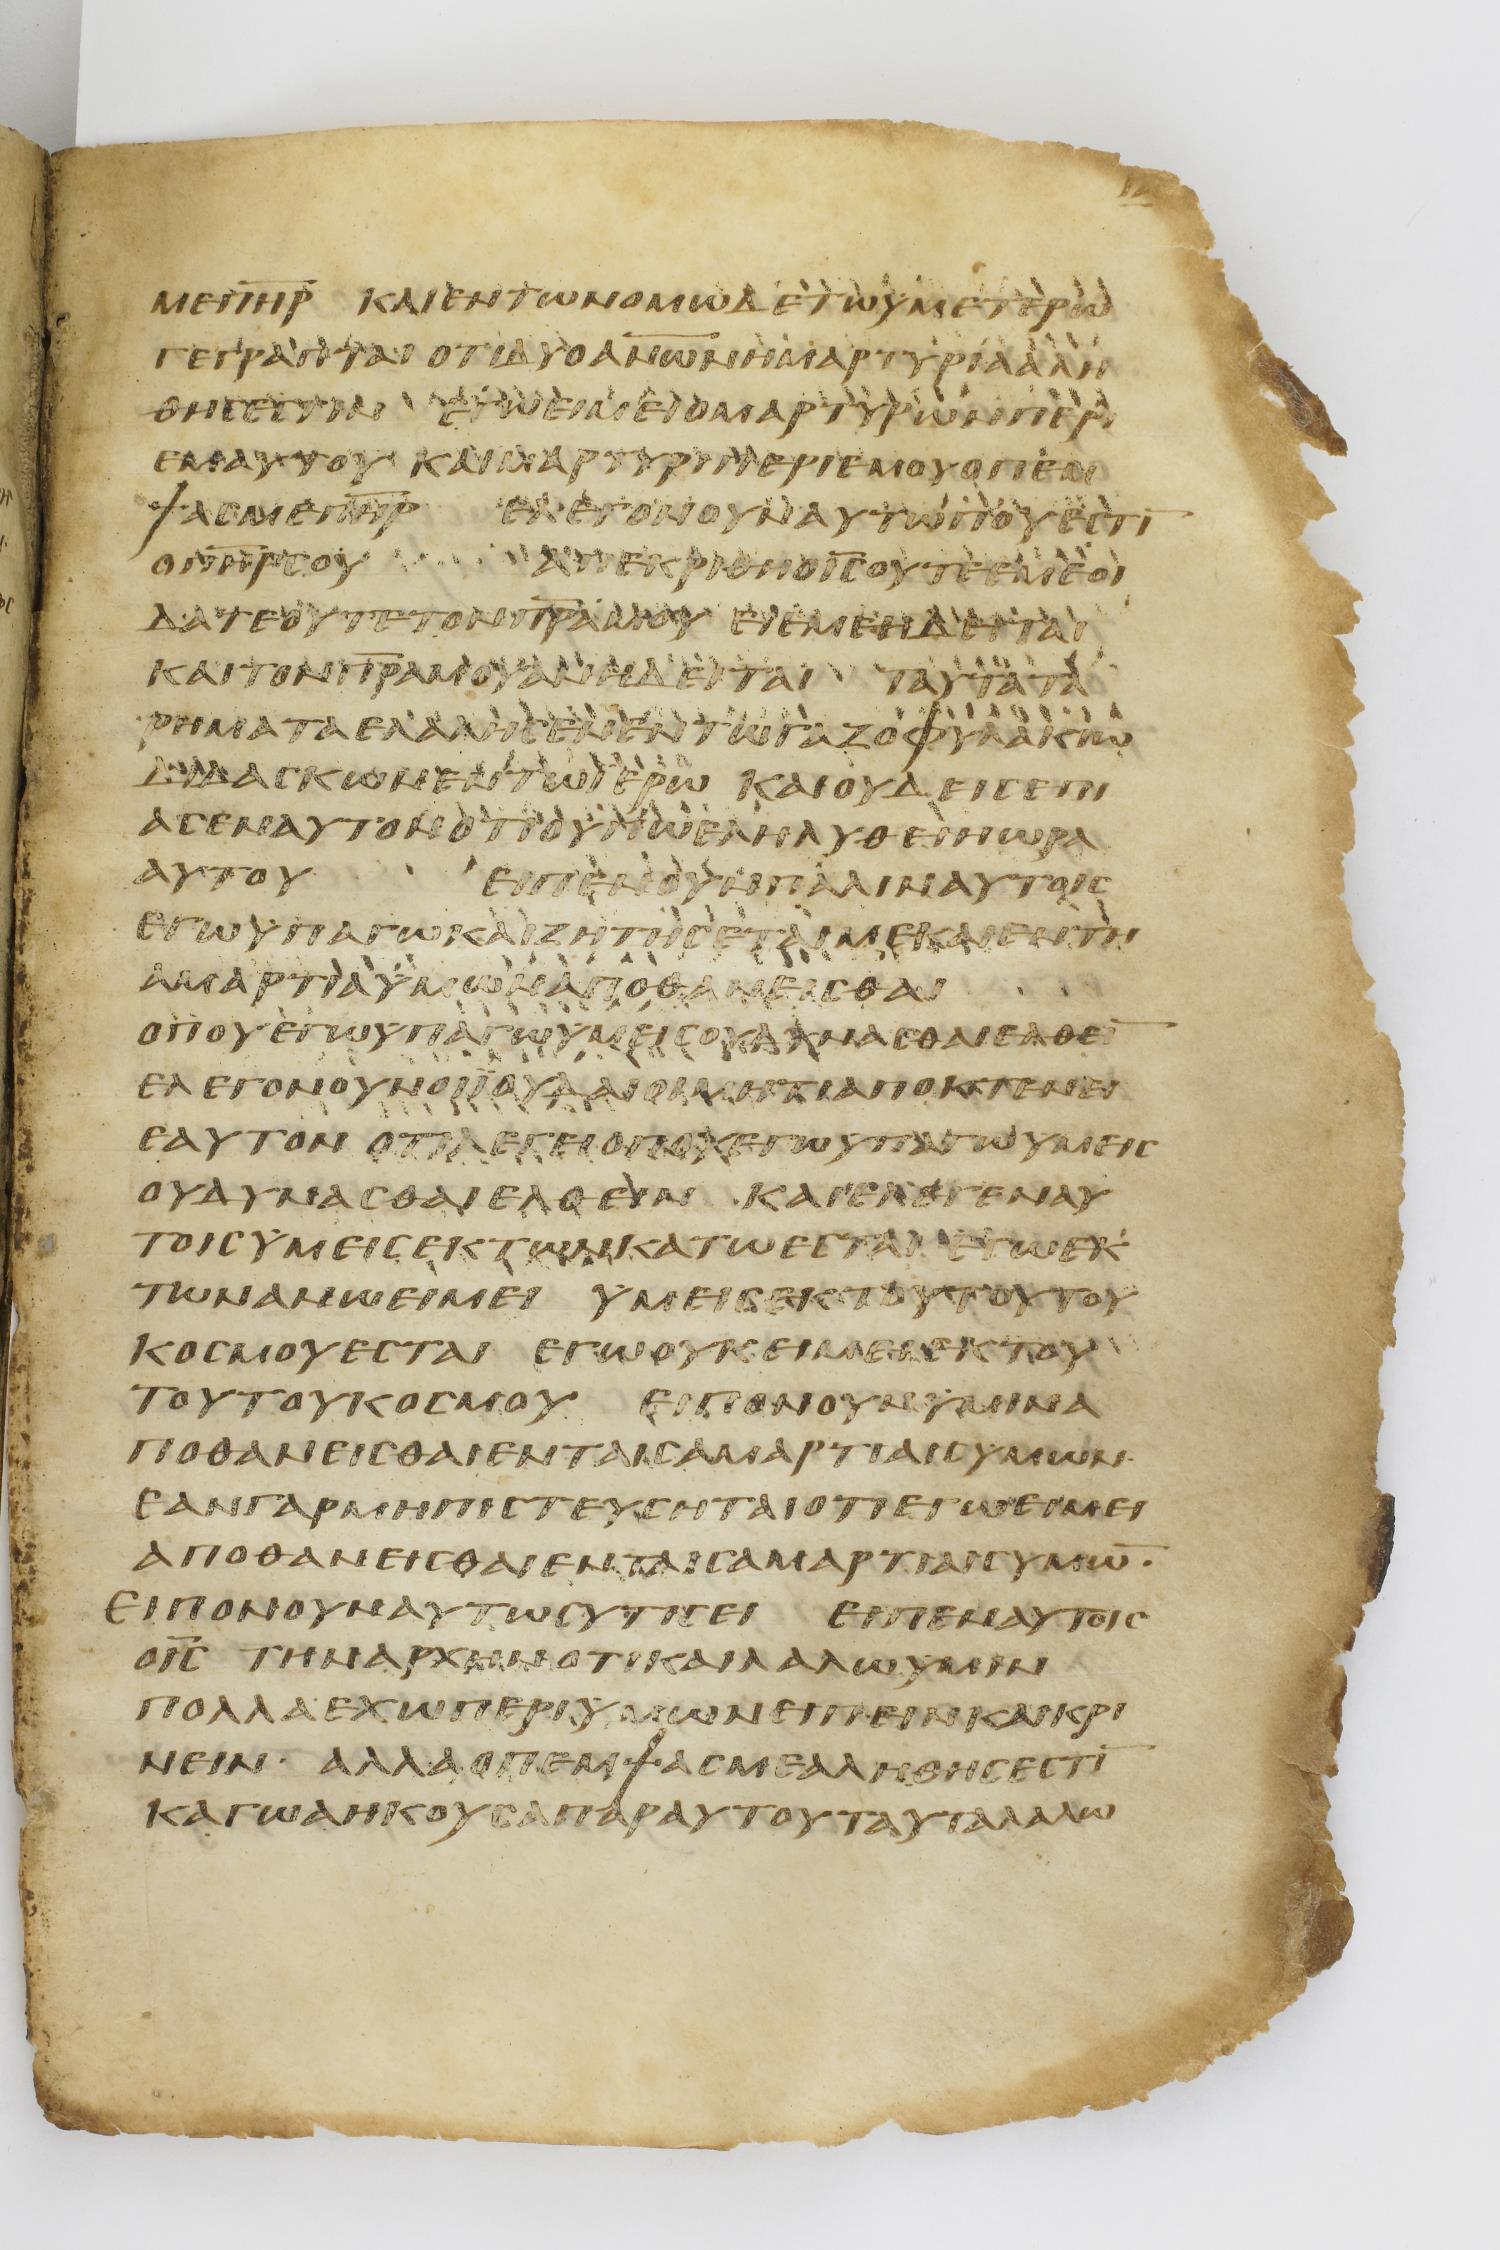 ΜΕΠΗΡ ΚΑΙΕΝΤΩΝΟΜΩΔΕΤΩΥΜΕΤΕΡΩ
ΓΕΓΡΑΠΤΑΙ ΟΤΙΔΥΟΑΝΩΝΗΜΑΡΤΥΡΙΑΑΛΗ
ΘΗСΕСΤΙΝ ΕΓΩΕΙΜΕΙΟΜΑΡΤΥΡΩΝΠΕΡΙ
ΕΜΑΥΤΟΥ ΚΑΙΜΑΡΤΥΡΙΠΕΡΙΕΜΟΥΟΠΕΜ
ΨΑСΜΕΠΗΡ ΕΛΕΓΟΝΟΥΝΑΥΤΩΠΟΥΕСΤΙ̅
ΟΠΗΡСΟΥ ΑΠΕΚΡΙΘΗΟΙСΟΥΤΕΕΜΕΟΙ
ΔΑΤΕΟΥΤΕΤΟΝΠΡΑΜΟΥ ΕΙΕΜΕΗΔΕΙΤΑΙ
ΚΑΙΤΟΝΠΡΑΜΟΥΑΝΗΔΕΙΤΑΙ ΤΑΥΤΑΤΑ
ΡΗΜΑΤΑΕΛΑΛΗСΕΝΕΝΤΩΓΑΖΟΦΥΛΑΚΙΩ
ΔΙΔΑСΚΩΝΕΝΤΩΙΕΡΩ ΚΑΙΟΥΔΕΙСΕΠΙ
ΑСΕΝΑΥΤΟΝΟΤΙΟΥΠΩΕΛΗΛΥΘΕΙΗΩΡΑ
ΑΥΤΟΥ ΕΙΠΕΝΟΥΝΠΑΛΙΝΑΥΤΟΙС
ΕΓΩΥΠΑΓΩΚΑΙΖΗΤΗСΕΤΑΙΜΕΚΑΙΕΝΤΗ
ΑΜΑΡΤΙΑΥΜΩΝΑΠΟΘΑΝΕΙСΘΑΙ
ΟΠΟΥΕΓΩΥΠΑΓΩΥΜΕΙСΟΥΔΥΝΑСΘΑΙΕΛΘΕΙ̅
ΕΛΕΓΟΝΟΥΝΟΙΙΟΥΔΑΙΟΙΜΗΤΙΑΠΟΚΤΕΝΕΙ
ΕΑΥΤΟΝ ΟΤΙΛΕΓΕΙΟΠΟΥΕΓΩΥΠΑΓΩΥΜΕΙС
ΟΥΔΥΝΑСΘΑΙΕΛΘΕΙΝ ΚΑΙΕΛΕΓΕΝΑΥ
ΤΟΙСΥΜΕΙСΕΚΤΩΝΚΑΤΩΕСΤΑΙ ΕΓΩΕΚ
ΤΩΝΑΝΩΕΙΜΕΙ ΥΜΕΙСΕΚΤΟΥΤΟΥΤΟΥ
ΚΟСΜΟΥΕСΤΑΙ ΕΓΩΟΥΚΕΙΜΕΙΕΚΤΟΥ
ΤΟΥΤΟΥΚΟСΜΟΥ ΕΙΠΟΝΟΥΝΥΜΙΝΑ
ΠΟΘΑΝΕΙСΘΑΙΕΝΤΑΙСΑΜΑΡΤΙΑΙСΥΜΩΝ·
ΕΑΝΓΑΡΜΗΠΙСΤΕΥСΗΤΑΙΟΤΙΕΓΩΕΙΜΕΙ
ΑΠΟΘΑΝΕΙСΘΑΙΕΝΤΑΙСΑΜΑΡΤΙΑΙСΥΜΩ̅·
ΕΙΠΟΝΟΥΝΑΥΤΩСΥΤΙСΕΙ ΕΙΠΕΝΑΥΤΟΙС
ΟΙС ΤΗΝΑΡΧΗΝΟΤΙΚΑΙΛΑΛΩΥΜΙΝ
ΠΟΛΛΑΕΧΩΠΕΡΙΥΜΩΝΕΙΠΕΙΝΚΑΙΚΡΙ
ΝΕΙΝ· ΑΛΛΑΟΠΕΜΨΑСΜΕΑΛΗΘΗСΕСΤΙ̅
ΚΑΓΩΑΗΚΟΥСΑΠΑΡΑΥΤΟΥΤΑΥΤΑΛΑΛΩ